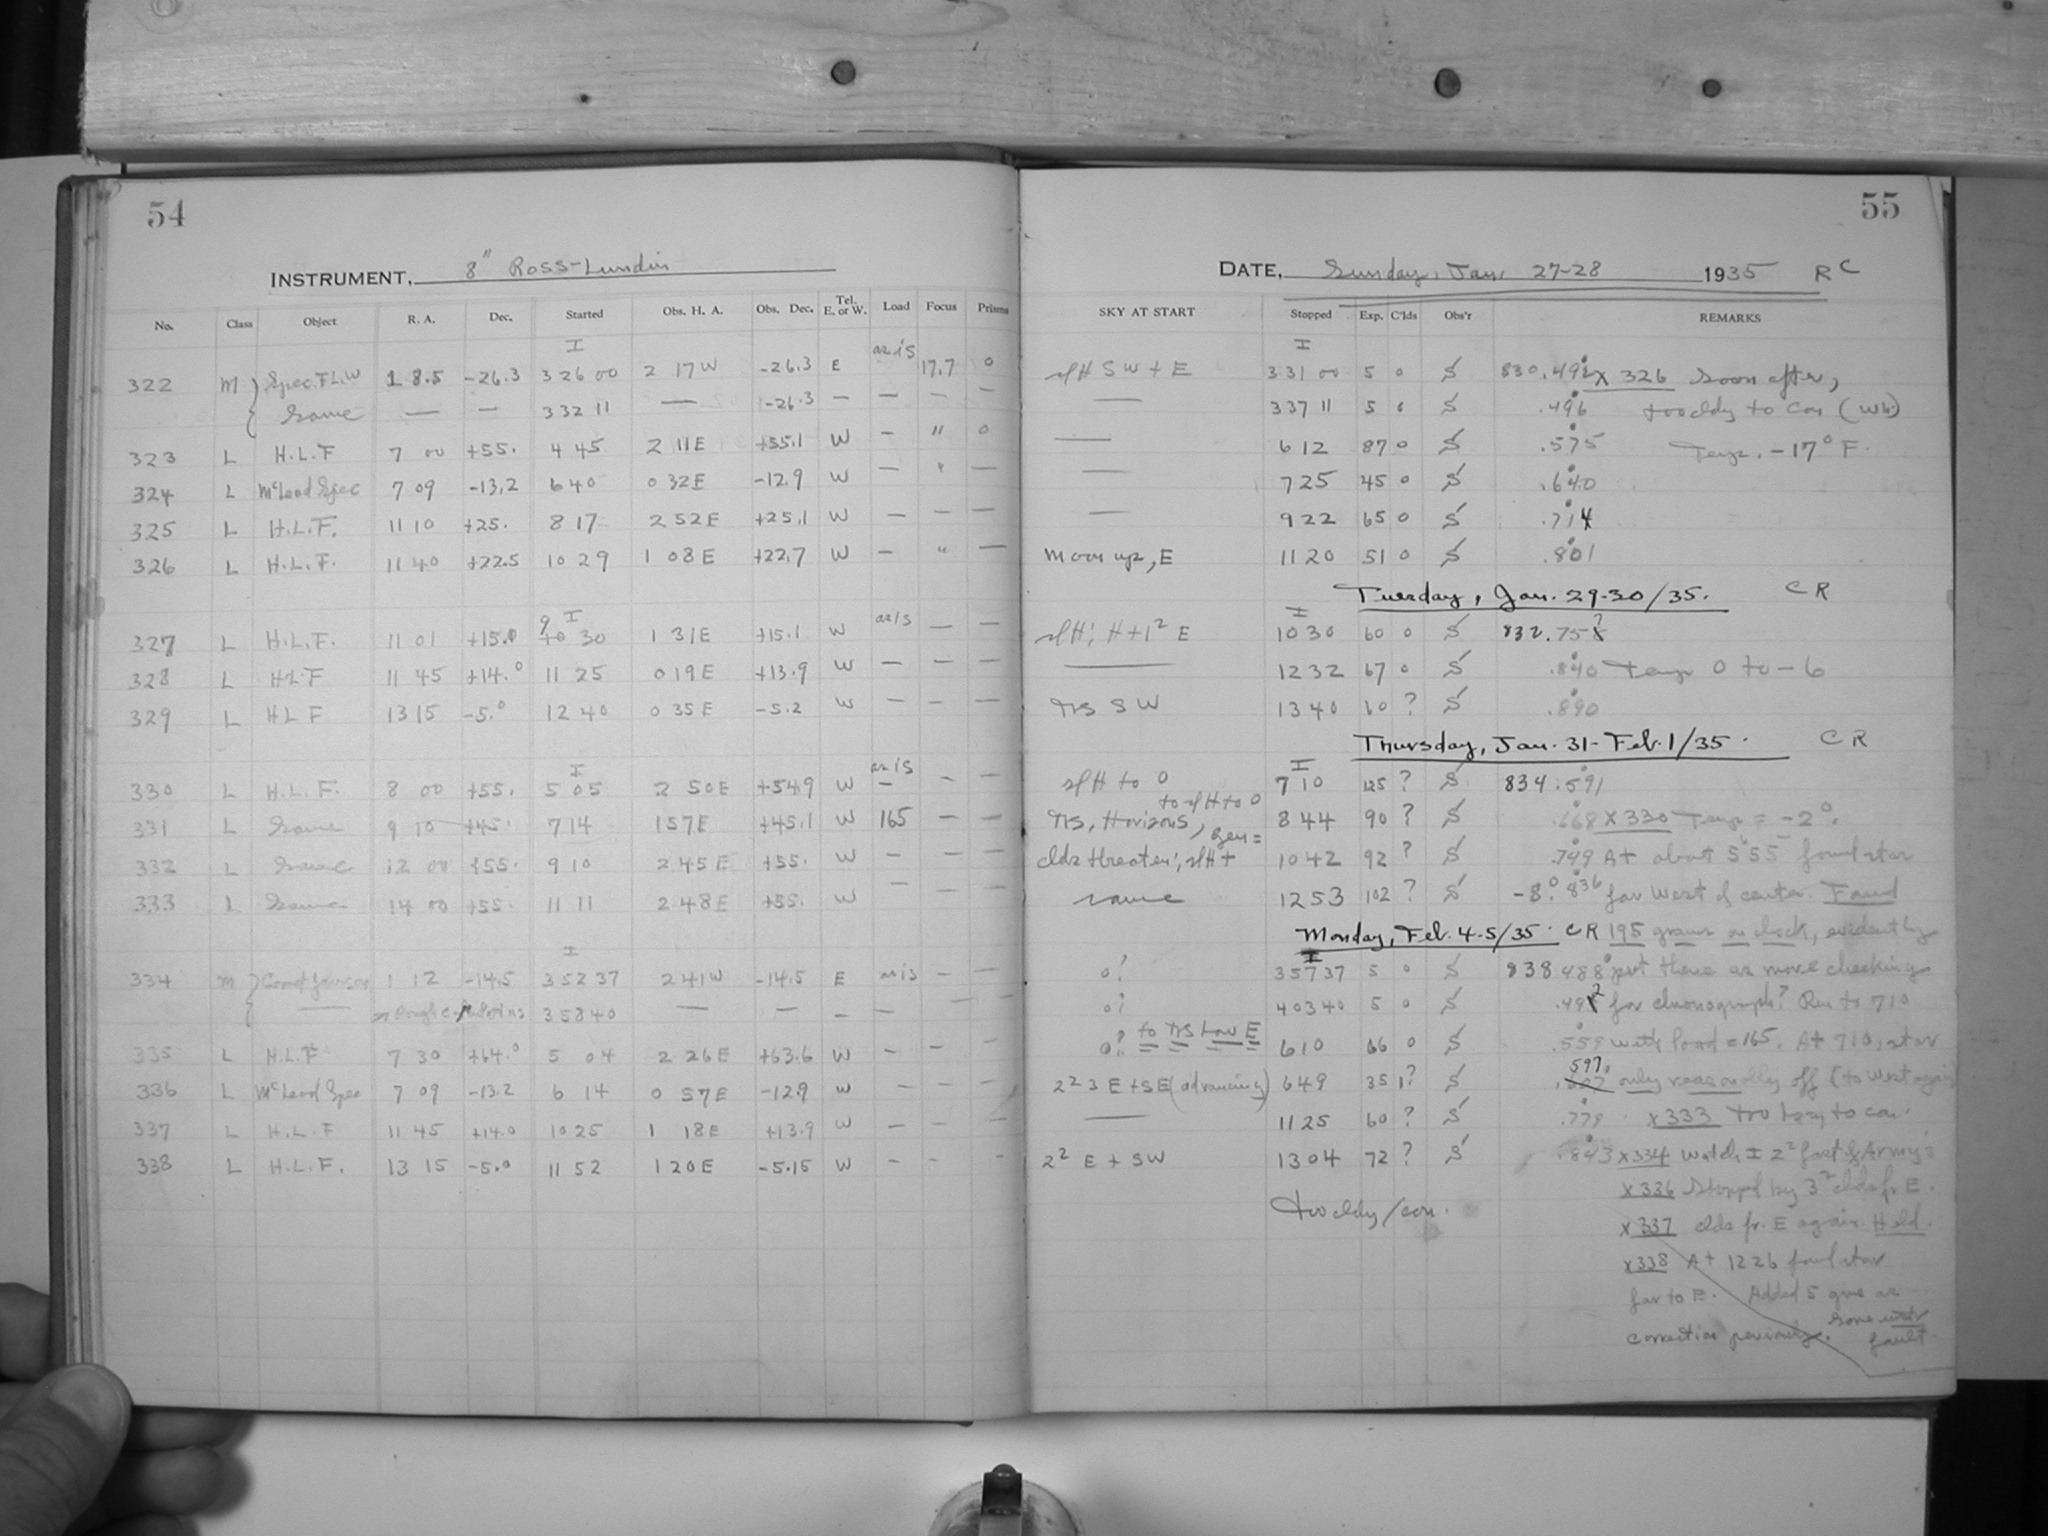 54
INSTRUMENT, 8" Ross-Lundin
No. Class Object R. A. Dec. Started Obs. H. A. Obs. Dec. Tel. E. or W. Load Focus Prisms
I as is
322 M Spec. FL.W 1 8.5 -26.3 3 26 00 2 17 W -26.3 E 17.7 0
Same — — 3 32 11 — -26.3 — — — —
323 L H.L.F 7 00 +55. 4 45 2 11 E +55.1 W — " 0
324 L McLeod Spec 7 09 -13.2 6 40 0 32 E -12.9 W — " —
325 L H.L.F. 11 10 +25. 8 17 2 52 E +25.1 W — — —
326 L H.L.F. 11 40 +22.5 10 29 1 08 E +22.7 W — " —
I as is
327 L H.L.F. 11 01 +15.0 9 30 1 31 E +15.1 W — —
328 L HLF 11 45 +14.0 11 25 0 19 E +13.9 W — — —
329 L HLF 13 15 -5.0 12 40 0 35 E -5.2 W — — —
I as is
330 L H.L.F. 8 00 +55. 5 05 2 50 E +54.9 W — — —
331 L Same 9 10 +45. 7 14 1 57 E +45.1 W 165 — —
332 L Same 12 00 +55. 9 10 2 45 E +55. W — — —
333 L Same 14 00 +55. 11 11 2 48 E +55. W — — —
I
334 M Comet 1 12 -14.5 3 52 37 2 41 W -14.5 E as is — —
— 3 58 40 — — — — — —
335 L H.L.F 7 30 +64.0 5 04 2 26 E +63.6 W — — —
336 L McLeod Spec 7 09 -13.2 6 14 0 57 E -12.9 W — — —
337 L H.L.F 11 45 +14.0 10 25 1 18 E +13.9 W — — —
338 L H.L.F. 13 15 -5.0 11 52 1 20 E -5.15 W — — -
55
DATE, Sunday, Jan. 27-28 1935 RC
SKY AT START Stopped Exp. C'lds Obs'r REMARKS
I
slH SW + E 3 31 00 5 0 S 830.492 x 326 Soon after,
— 3 37 11 5 0 S .496 too cldy to con (Wb.)
— 6 12 87 0 S .575 Temp. -17° F.
— 7 25 45 0 S .640
— 9 22 65 0 S .714
Moon up, E 11 20 51 0 S .801
Tuesday, Jan. 29-30/35. CR
I
slH; H+1² E 10 30 60 0 S 832.75
— 12 32 67 0 S .840 Temp 0 to -6
SW 13 40 60 ? S .890
Thursday, Jan. 31 - Feb. 1/35. CR
I
slH to 0 7 10 125 ? S 834.591
to slH to 0
Horizons, 8 44 90 ? S .668 x 330 Temp = -2°.
clds threaten; slH + 10 42 92 ? S .749 At about 5h 55 found star
same 12 53 102 ? S -8° .836 far West of center. Found
Monday, Feb. 4-5/35. CR 195 grams on clock, evidently
I
0? 3 57 37 5 0 S 838.488 put there as more checking
0? 4 03 40 5 0 S .492 for chronograph? Run to 710
0? to Low E 6 10 66 0 S .559 with load = 165. At 710, star
2² 3 E + SE (advancing) 6 49 35 1? S .597 only reasonably off (to West again
— 11 25 60 ? S .779 x 333 Too hazy to con.
2² E + SW 13 04 72 ? S .843 x 334 Watch I 2s fast of Army's
x 336 Stopped by 3² clds fr. E.
too cldy/con. x 337 clds fr. E again. Held.
x 338 At 1226 found star
far to E. Added 5 gms as
correction previously. Some
fault